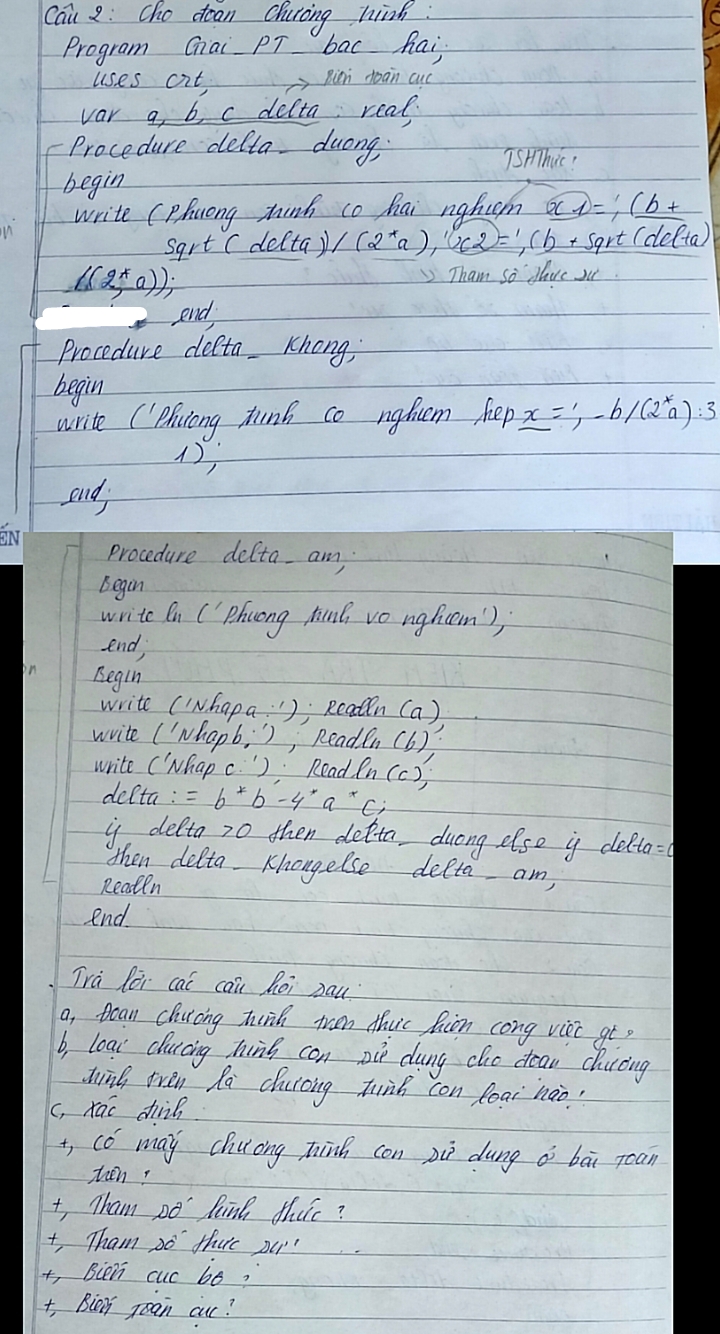 Câu 2: Cho đoạn chương trình:
Program Giai_PT_bac_hai;
uses crt, → Biến toàn cục
var a, b, c delta : real;
Procedure delta_duong;
TSHThức?
begin
write (Phuong trinh co hai nghiem x1=', (b +
sqrt(delta)/(2*a), 'x2=', (b + sqrt(delta)
/(2*a));
Tham số thực sự
end;
Procedure delta_Khong;
begin
write ('Phuong trinh co nghiem kep x = ', -b/(2*a):3
1);
end;
ẾN
Procedure delta_am;
Begin
write ln ('Phuong trinh vo nghiem');
end;
Begin
write ('Nhap a:'); Readln (a);
write ('Nhap b:'); Readln (b);
write ('Nhap c:'); Readln (c);
delta := b*b-4*a*c;
if delta >0 then delta_duong else if delta=0
then delta_Khong else delta_am;
Readln
end.
Trả lời các câu hỏi sau:
a, Đoạn chương trình trên thực hiện công việc gì?
b, loại chương trình con sử dụng cho đoạn chương
trình trên là chương trình con loại nào?
c, xác định
+, có mấy chương trình con sử dụng ở bài toán
trên?
+, Tham số hình thức?
+, Tham số thực sự?
+, Biến cục bộ?
+, Biến toàn cục?